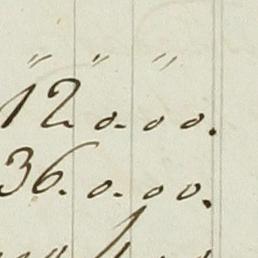 〃 〃 〃
12.0.0.0.
36.0.0.0.